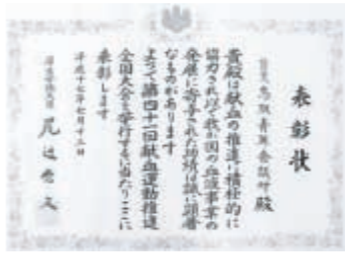 表彰状
殿
貴殿は献血の推進に積極的に
協力され以て我が国の血液事業の
発展に寄与された功績は誠に顕著
なものがあります
よって第四十一回献血運動推進
全国大会を挙行するに当たりここに
表彰します
平成十七年七月十三日
厚生労働大臣 尾辻秀久